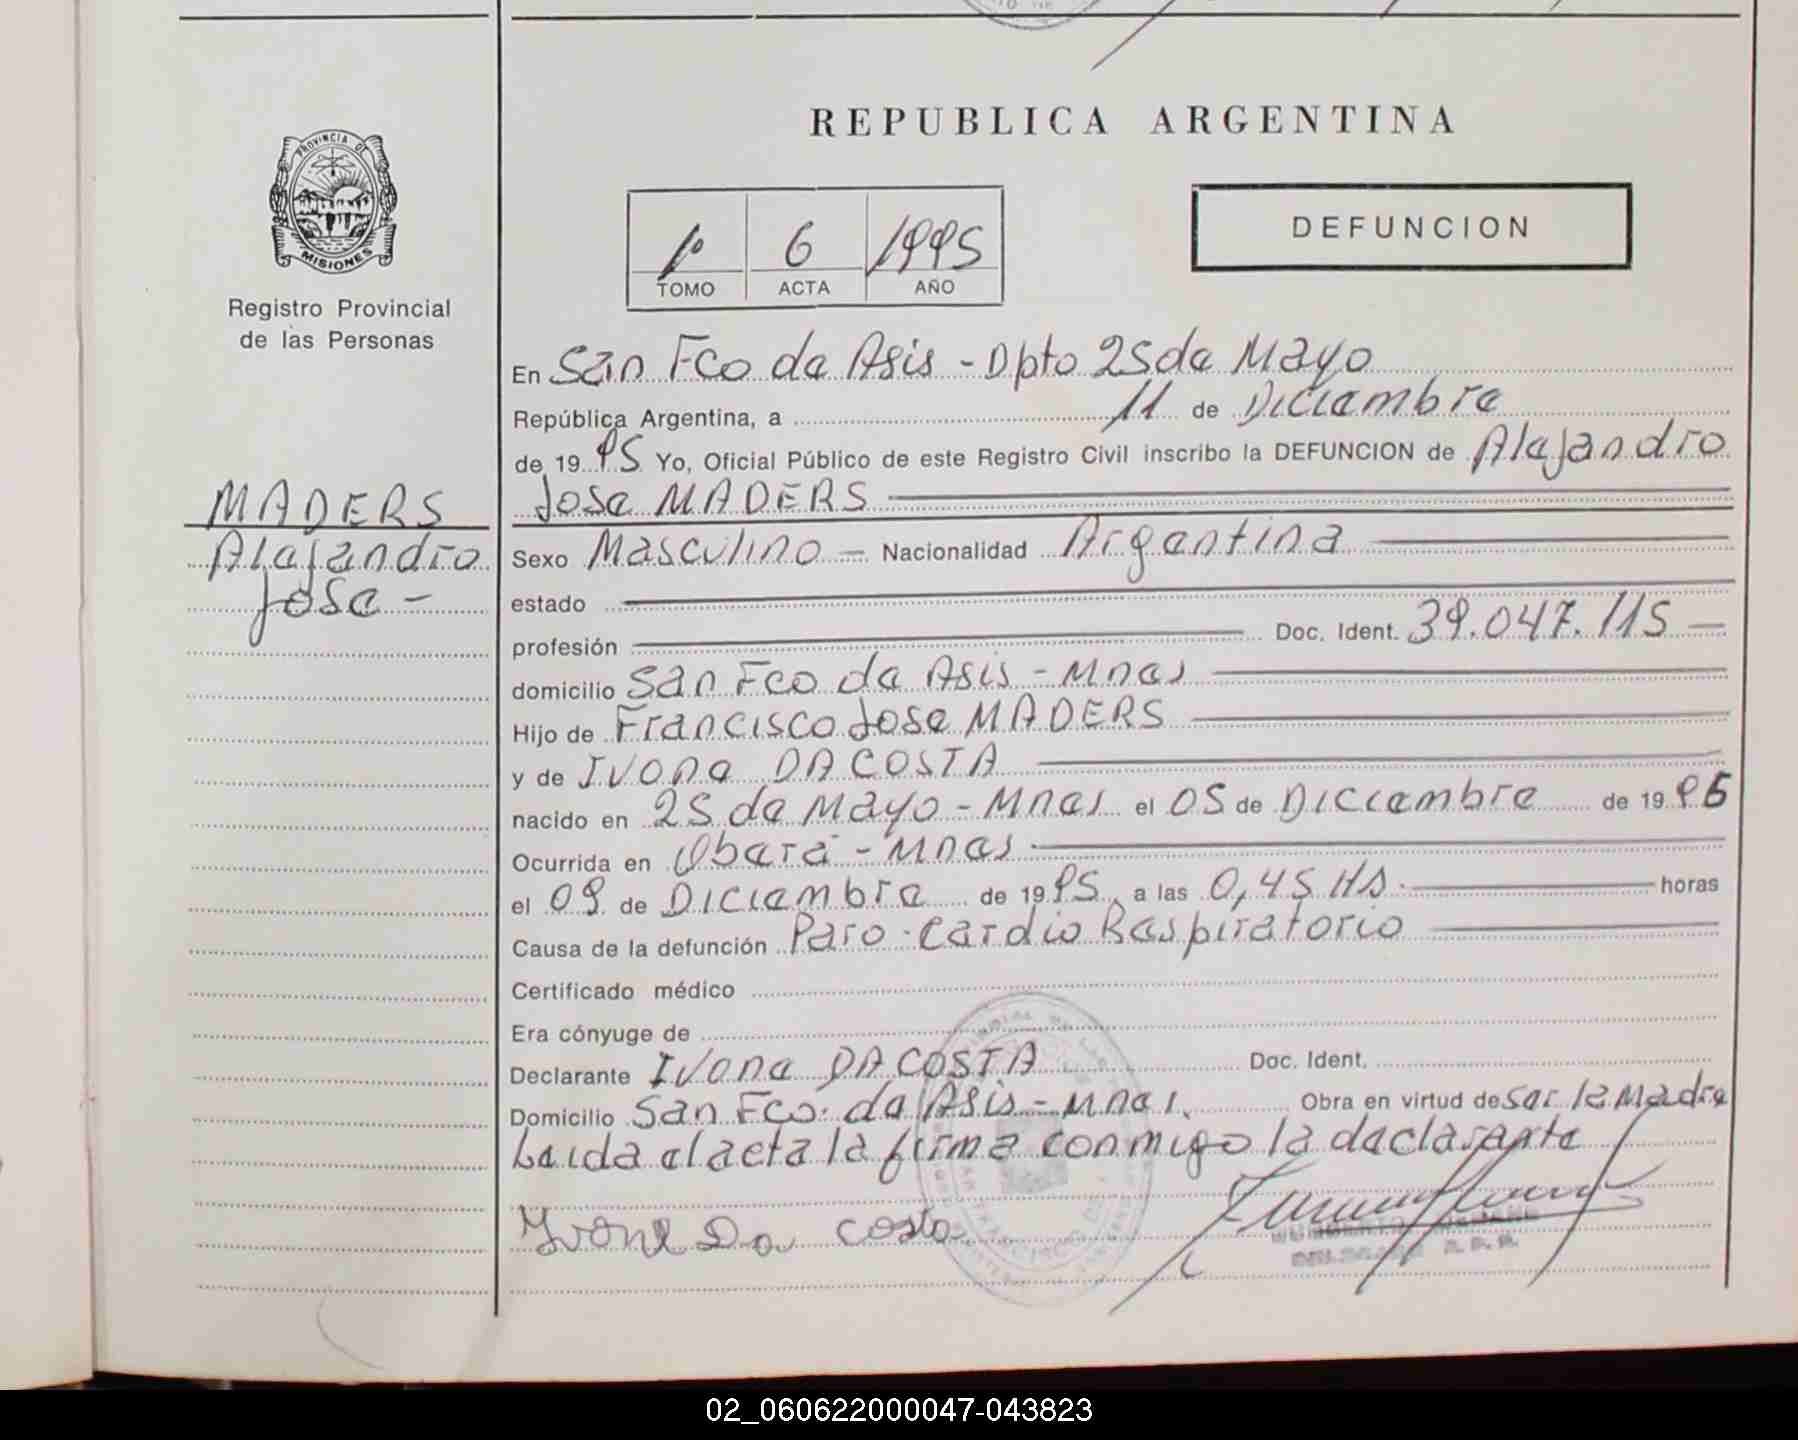 REPUBLICA ARGENTINA
PROVINCIA DE
MISIONES
Registro Provincial
de las Personas
1º 6 1995
TOMO ACTA AÑO
DEFUNCION
MADERS
Alejandro
Jose -
En San Fco de Asis - Dpto 25 de Mayo
República Argentina, a 11 de Diciembre
de 19 95 Yo, Oficial Público de este Registro Civil inscribo la DEFUNCION de Alejandro
Jose MADERS
Sexo Masculino - Nacionalidad Argentina
estado
profesión Doc. Ident. 39.047.115 -
domicilio San Fco de Asis - Mnes
Hijo de Francisco Jose MADERS
y de Ivone DA COSTA
nacido en 25 de Mayo - Mnes el 05 de Diciembre de 19 95
Ocurrida en Obera - Mnes
el 09 de Diciembre de 19 95 a las 0,45 Hs. horas
Causa de la defunción Paro Cardio Respiratorio
Certificado médico
Era cónyuge de
Declarante Ivone DA COSTA Doc. Ident.
Domicilio San Fco. de Asis - Mnes. Obra en virtud de ser la Madre
Leida el acta la firma conmigo la declarante
Ivone Da Costa
02_060622000047-043823